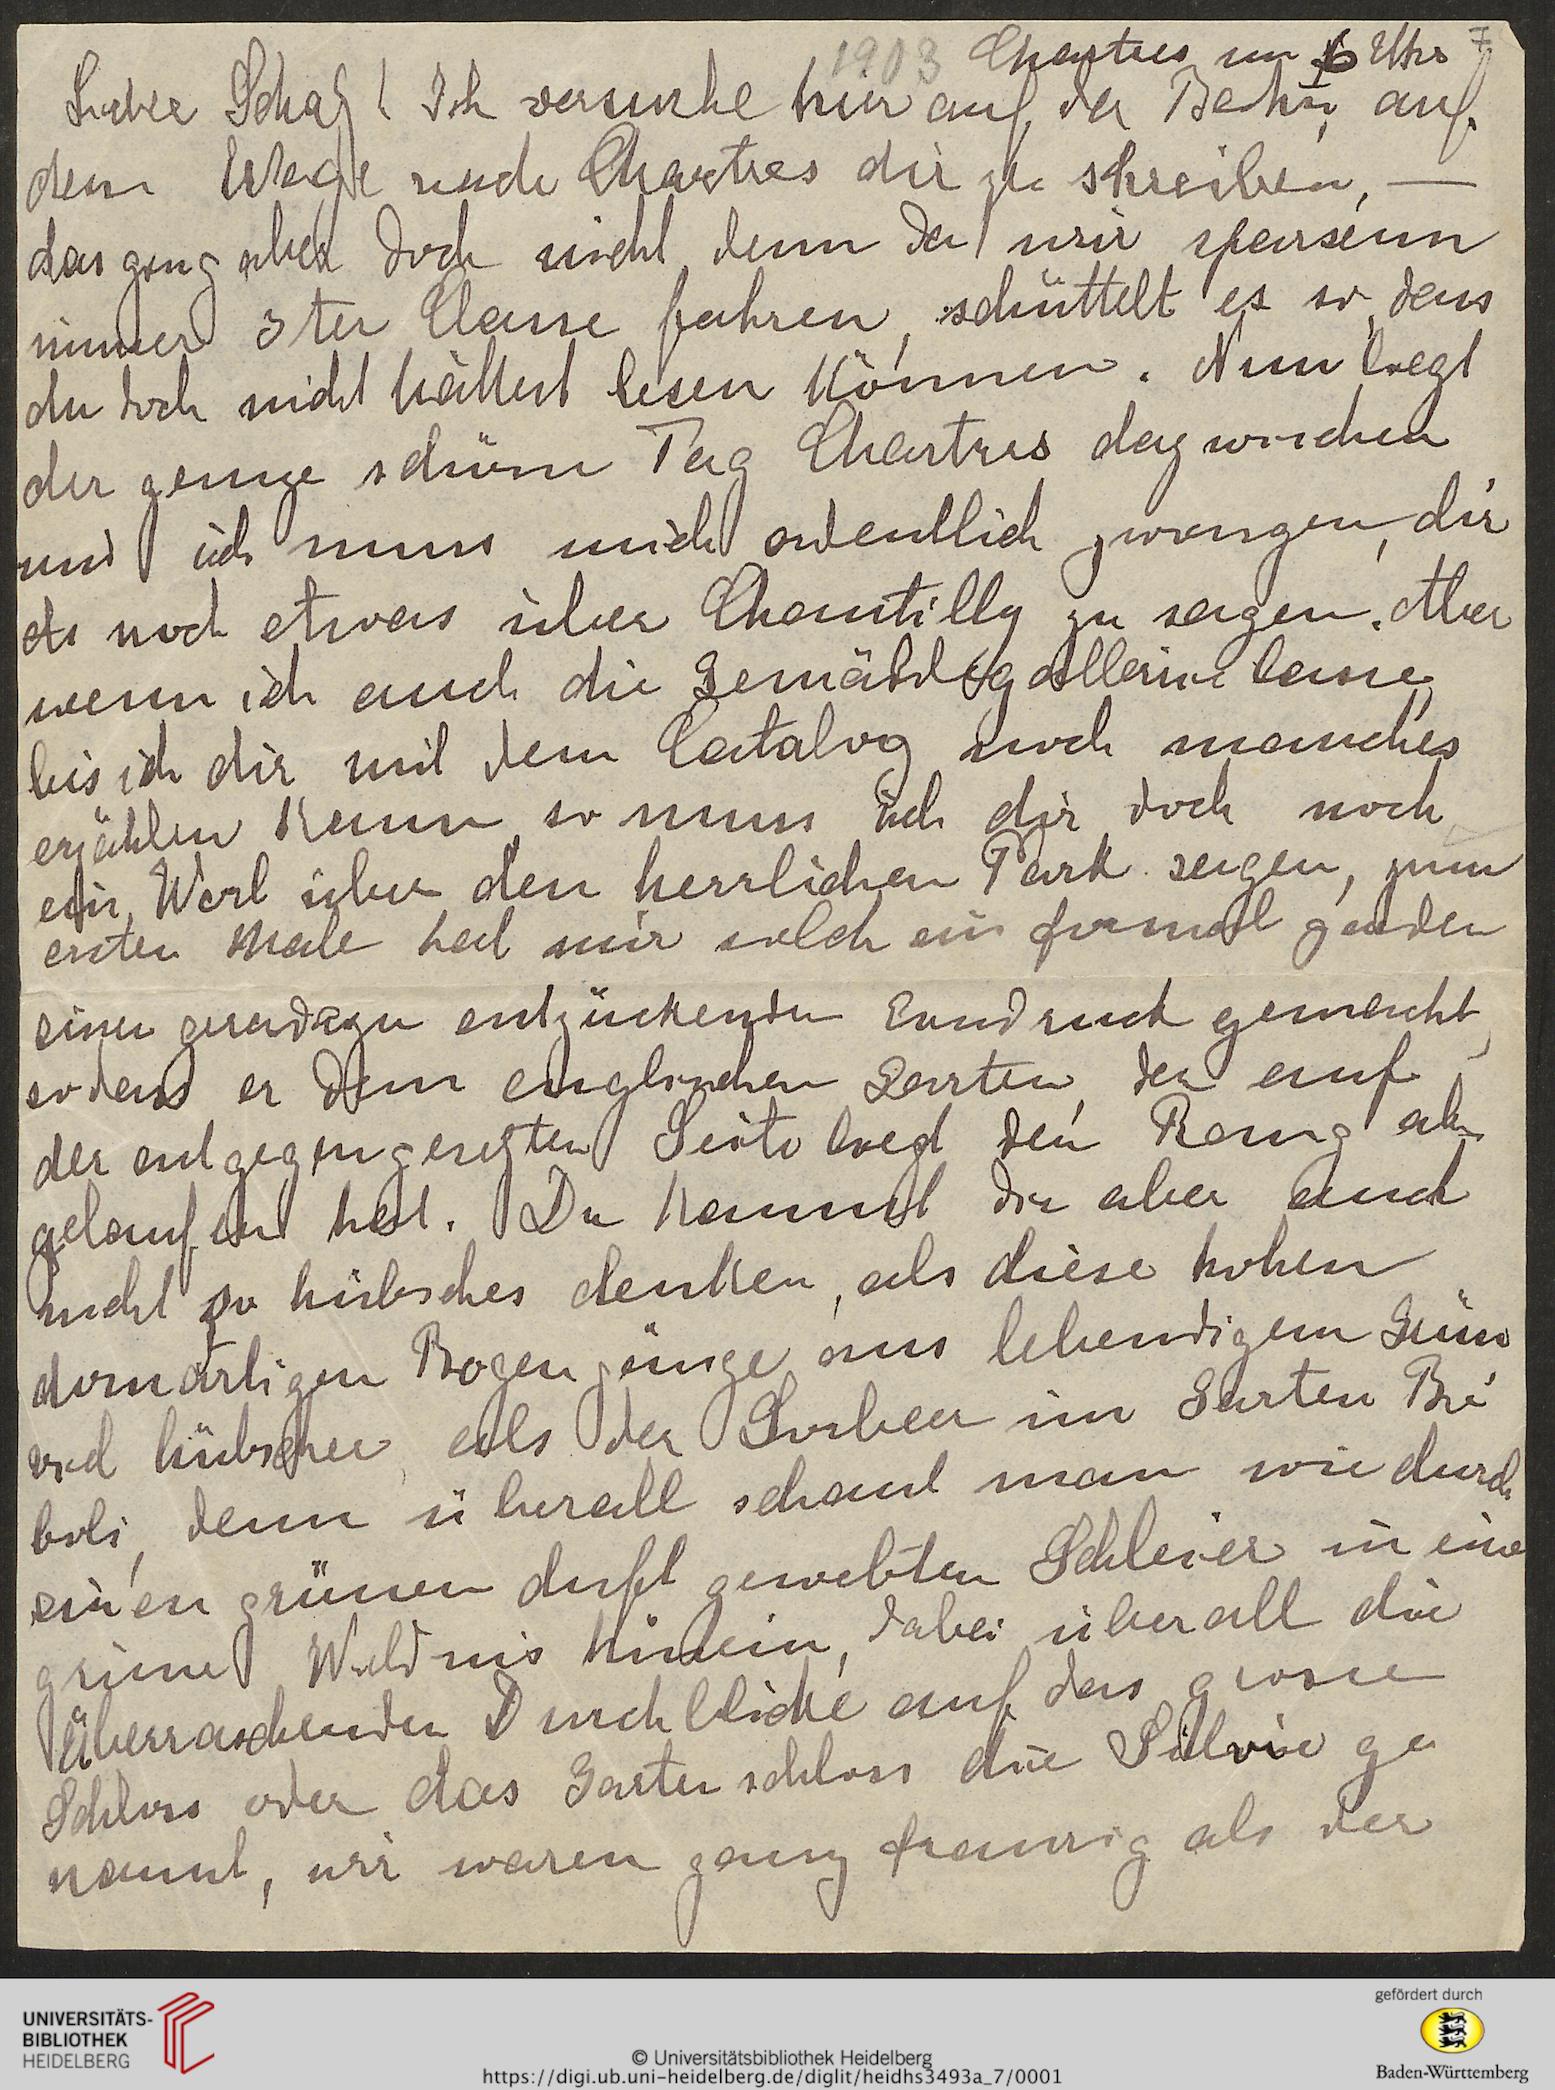 1903 Chartres um 6 Uhr 7
Lieber Schatz! Ich versuche hier auf der Bahn, auf
dem Wege nach Chartres dir zu schreiben, —
das ging aber doch nicht denn da wir sparsam
immer 3ter Classe fahren, schüttelt es so, dass
du doch nicht hättest lesen können. Nun liegt
der ganze schöne Tag Chartres dazwischen
und ich muss mich ordentlich zwingen, dir
noch etwas über Chantilly zu sagen. Aber
wenn ich auch die Gemäldegallerie lasse,
bis ich dir mit dem Catalog noch manches
erzählen kann, so muss ich dir doch noch
ein Wort über den herrlichen Park sagen, zum
ersten Male hat mir solch ein formal garden
einen geradezu entzückenden Eindruck gemacht,
sodass er dem englischen Garten, der auf
der entgegengesetzten Seite liegt den Rang ab
gelaufen hat. Du kannst dir aber auch
nicht so hübsches denken, als diese hohen
domartigen Bogengänge aus lebendigem Grün
viel hübscher als der Lorbeer im Garten Bo
boli, denn überall schaut man wie durch
einen grünen duft gewebten Schleier in eine
grüne Wildnis hinein, dabei überall die
überraschenden Durchblicke auf das grosse
Schloss oder das Gartenschloss die Silvie ge
nannt, wir waren ganz traurig als der
UNIVERSITÄTS-
BIBLIOTHEK
HEIDELBERG
© Universitätsbibliothek Heidelberg
https://digi.ub.uni-heidelberg.de/diglit/heidhs3493a_7/0001
gefördert durch
Baden-Württemberg